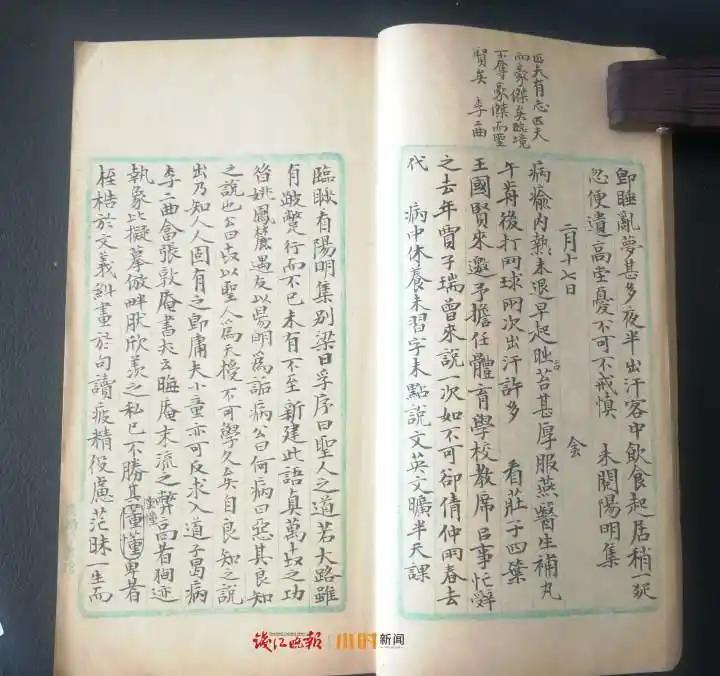 匹夫有志匹夫
而豪傑矣臨境
不奪豪傑而聖
賢矣 李二曲
即睡亂夢甚多夜半出汗客中飲食起居稍一
忽便遺高堂憂不可不戒慎 未閱陽明集
二月十七日
病癒內熱未退早起舌苔甚厚服燕醫生補丸
午前後打网球兩次出汗許多 看莊子四葉
王國賢來邀予擔任體育學校教席以事忙辭
之去年賈子瑞曾來說一次如不可卻倩仲雨春去
代 病中休養未習字未點說文英文曠半天課
臨睡看陽明集別梁日孚序曰聖人之道若大路雖
有跛蹩行而不已未有不至新建此語真萬古之功
姚鳳麓遇友以陽明為詬病公曰何病曰惡其良知
之說也公曰古以聖人為天授不可學久矣自良知之說
出乃知人人固有之即庸夫小童亦可反求入道子曷病
李二曲會張敦庵書夫云晦庵末流之弊高者徇迹
執象比擬摹倣畔肰欣羨之私已不勝其憧憧卑者
桎梏於文義糾畫於句讀疲精役慮茫昧一生而
錢江晚報 小时新闻